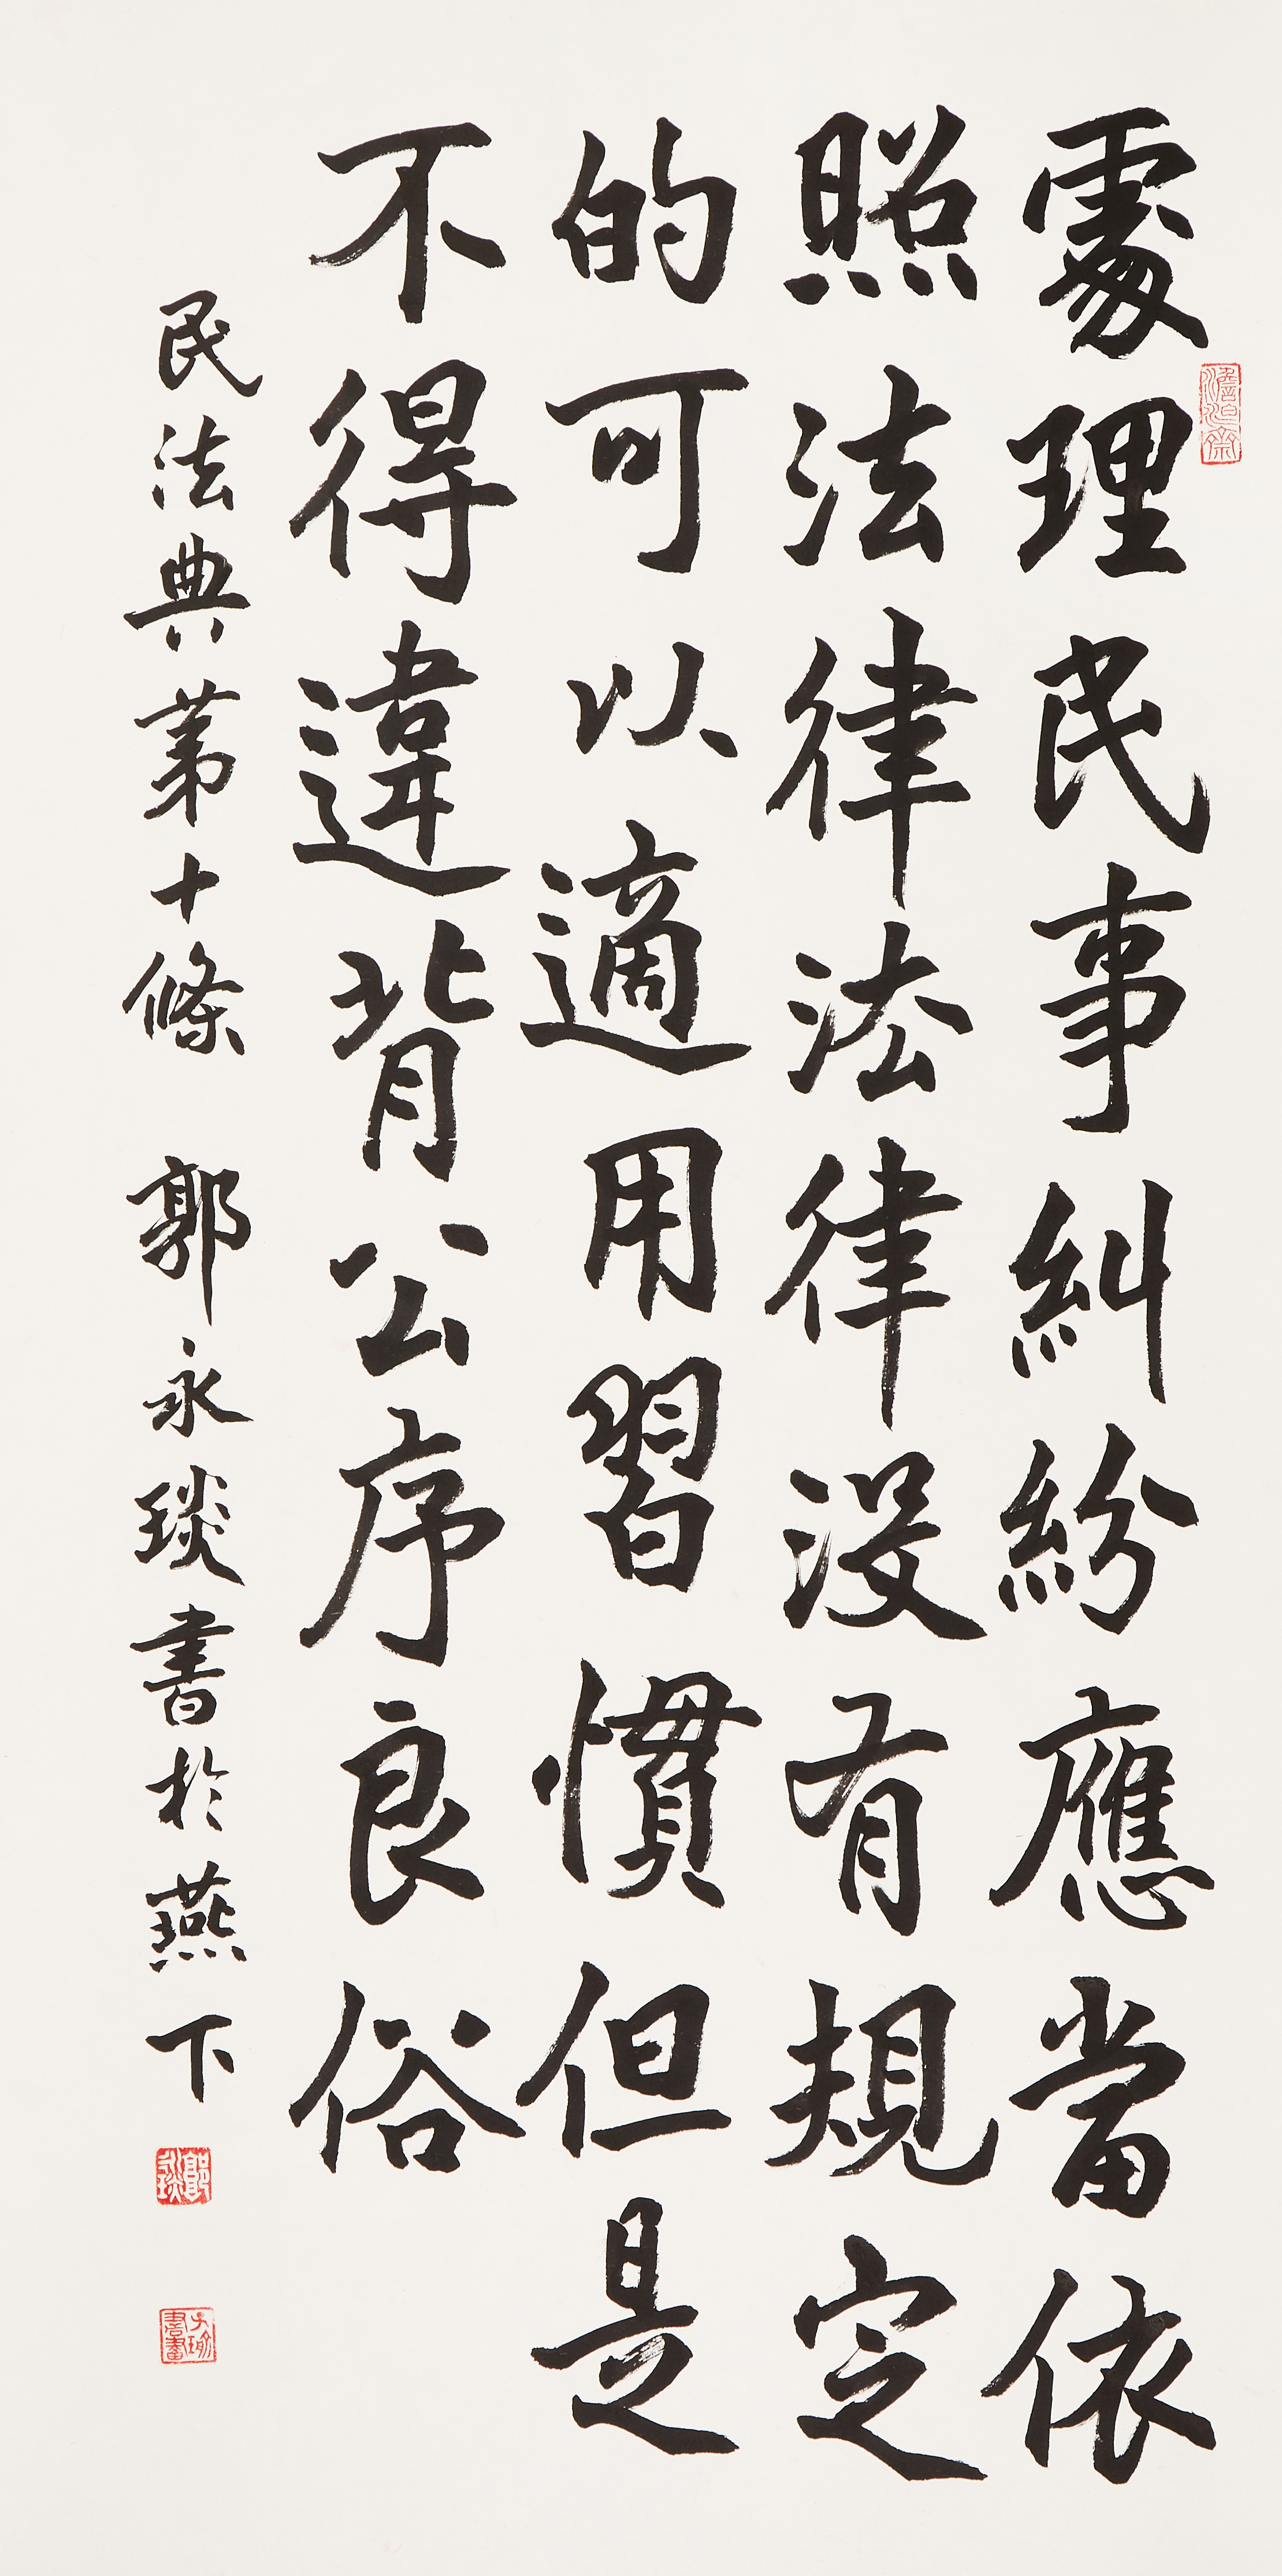 處理民事糾紛應當依
照法律法律沒有規定
的可以適用習慣但是
不得違背公序良俗
民法典第十條 郭永琰書於燕下